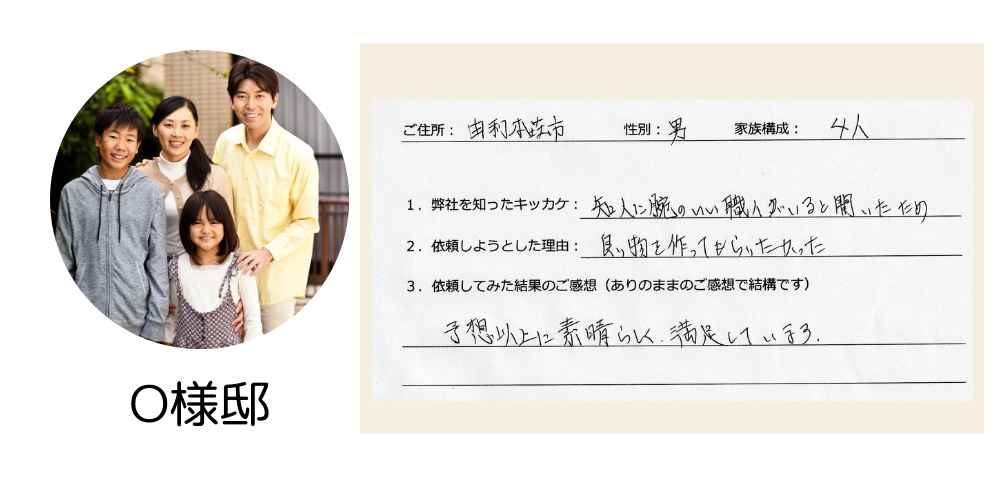 ご住所： 由利本荘市 性別： 男 家族構成： 4人
1．弊社を知ったキッカケ： 知人に腕のいい職人がいると聞いたため
2．依頼しようとした理由： 良い物を作ってもらいたかった
3．依頼してみた結果のご感想（ありのままのご感想で結構です）
予想以上に素晴らしく、満足しています。
O様邸